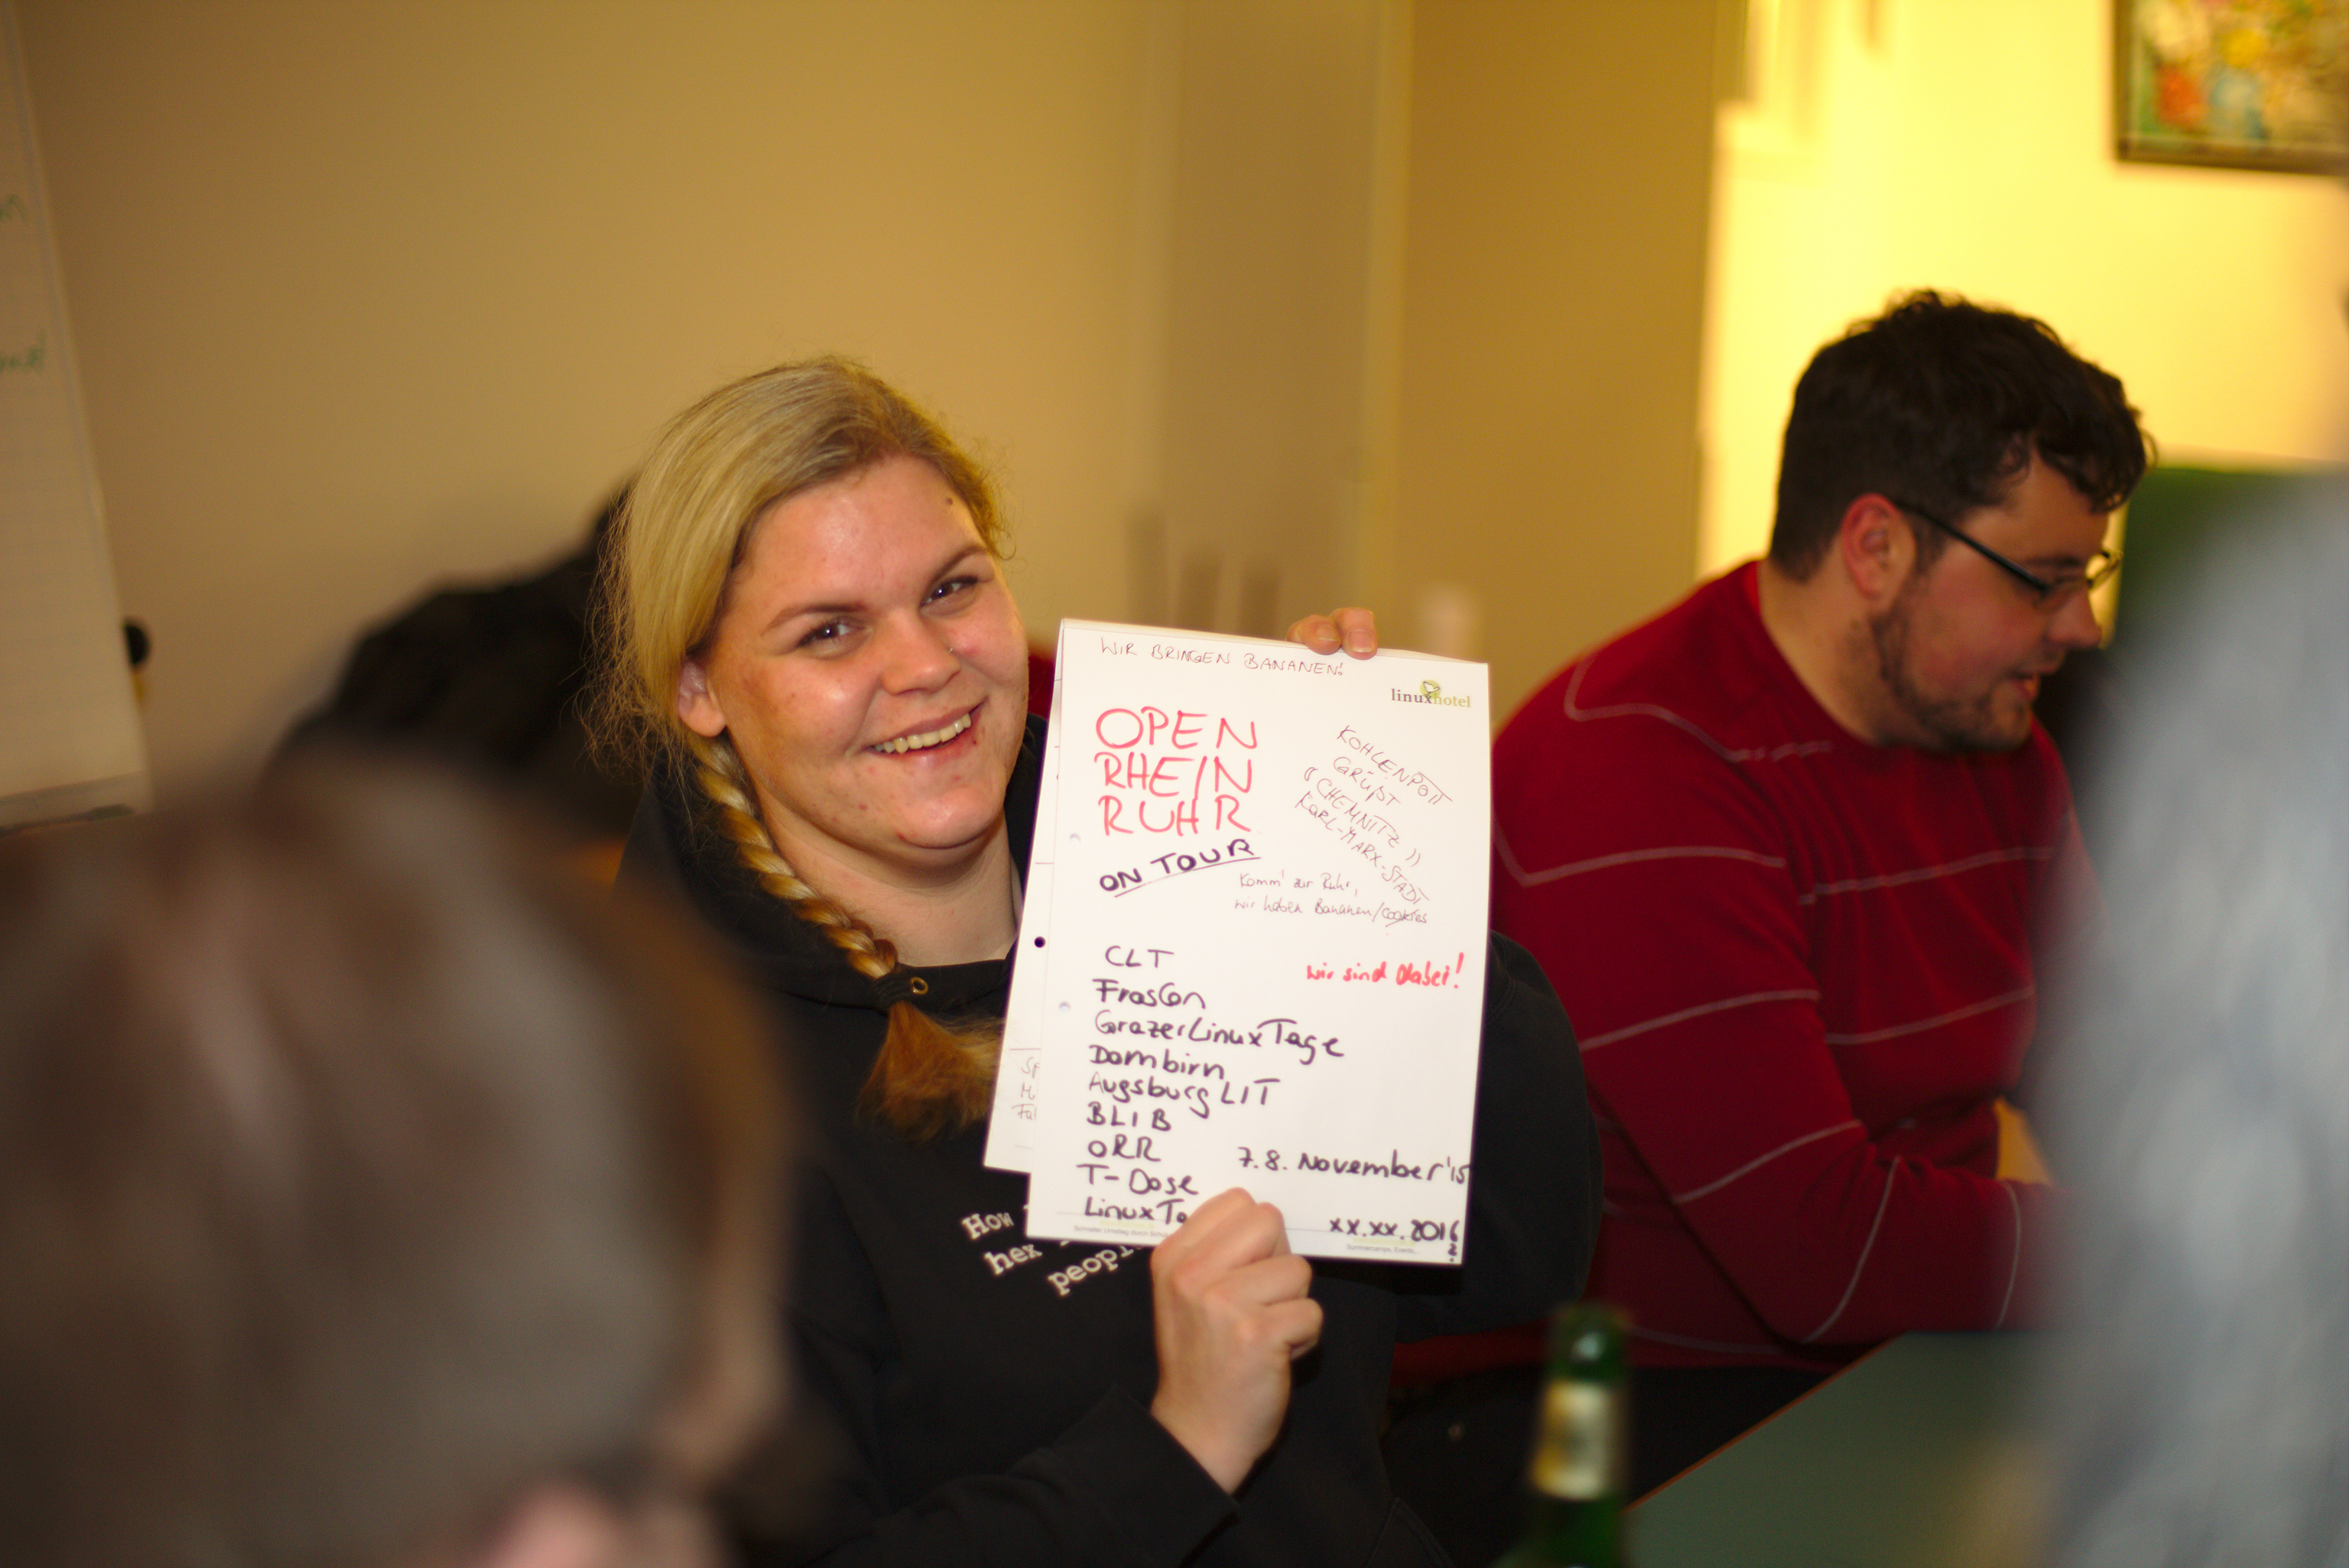 WIR BRINGEN BANANEN!
linuxhotel
OPEN
RHEIN
RUHR
ON TOUR
KOHLENPOTT
GRÜßT
"CHEMNITZ"
KARL-MARX-STADT
Komm' zur Ruhr,
wir haben Bananen/Cookies
wir sind dabei!
CLT
FrosCon
GrazerLinuxTage
Dornbirn
Augsburg LIT
BLIB
ORR
7.8. November'15
T-Dose
LinuxTa
xx.xx.2016
?
How
hex
people